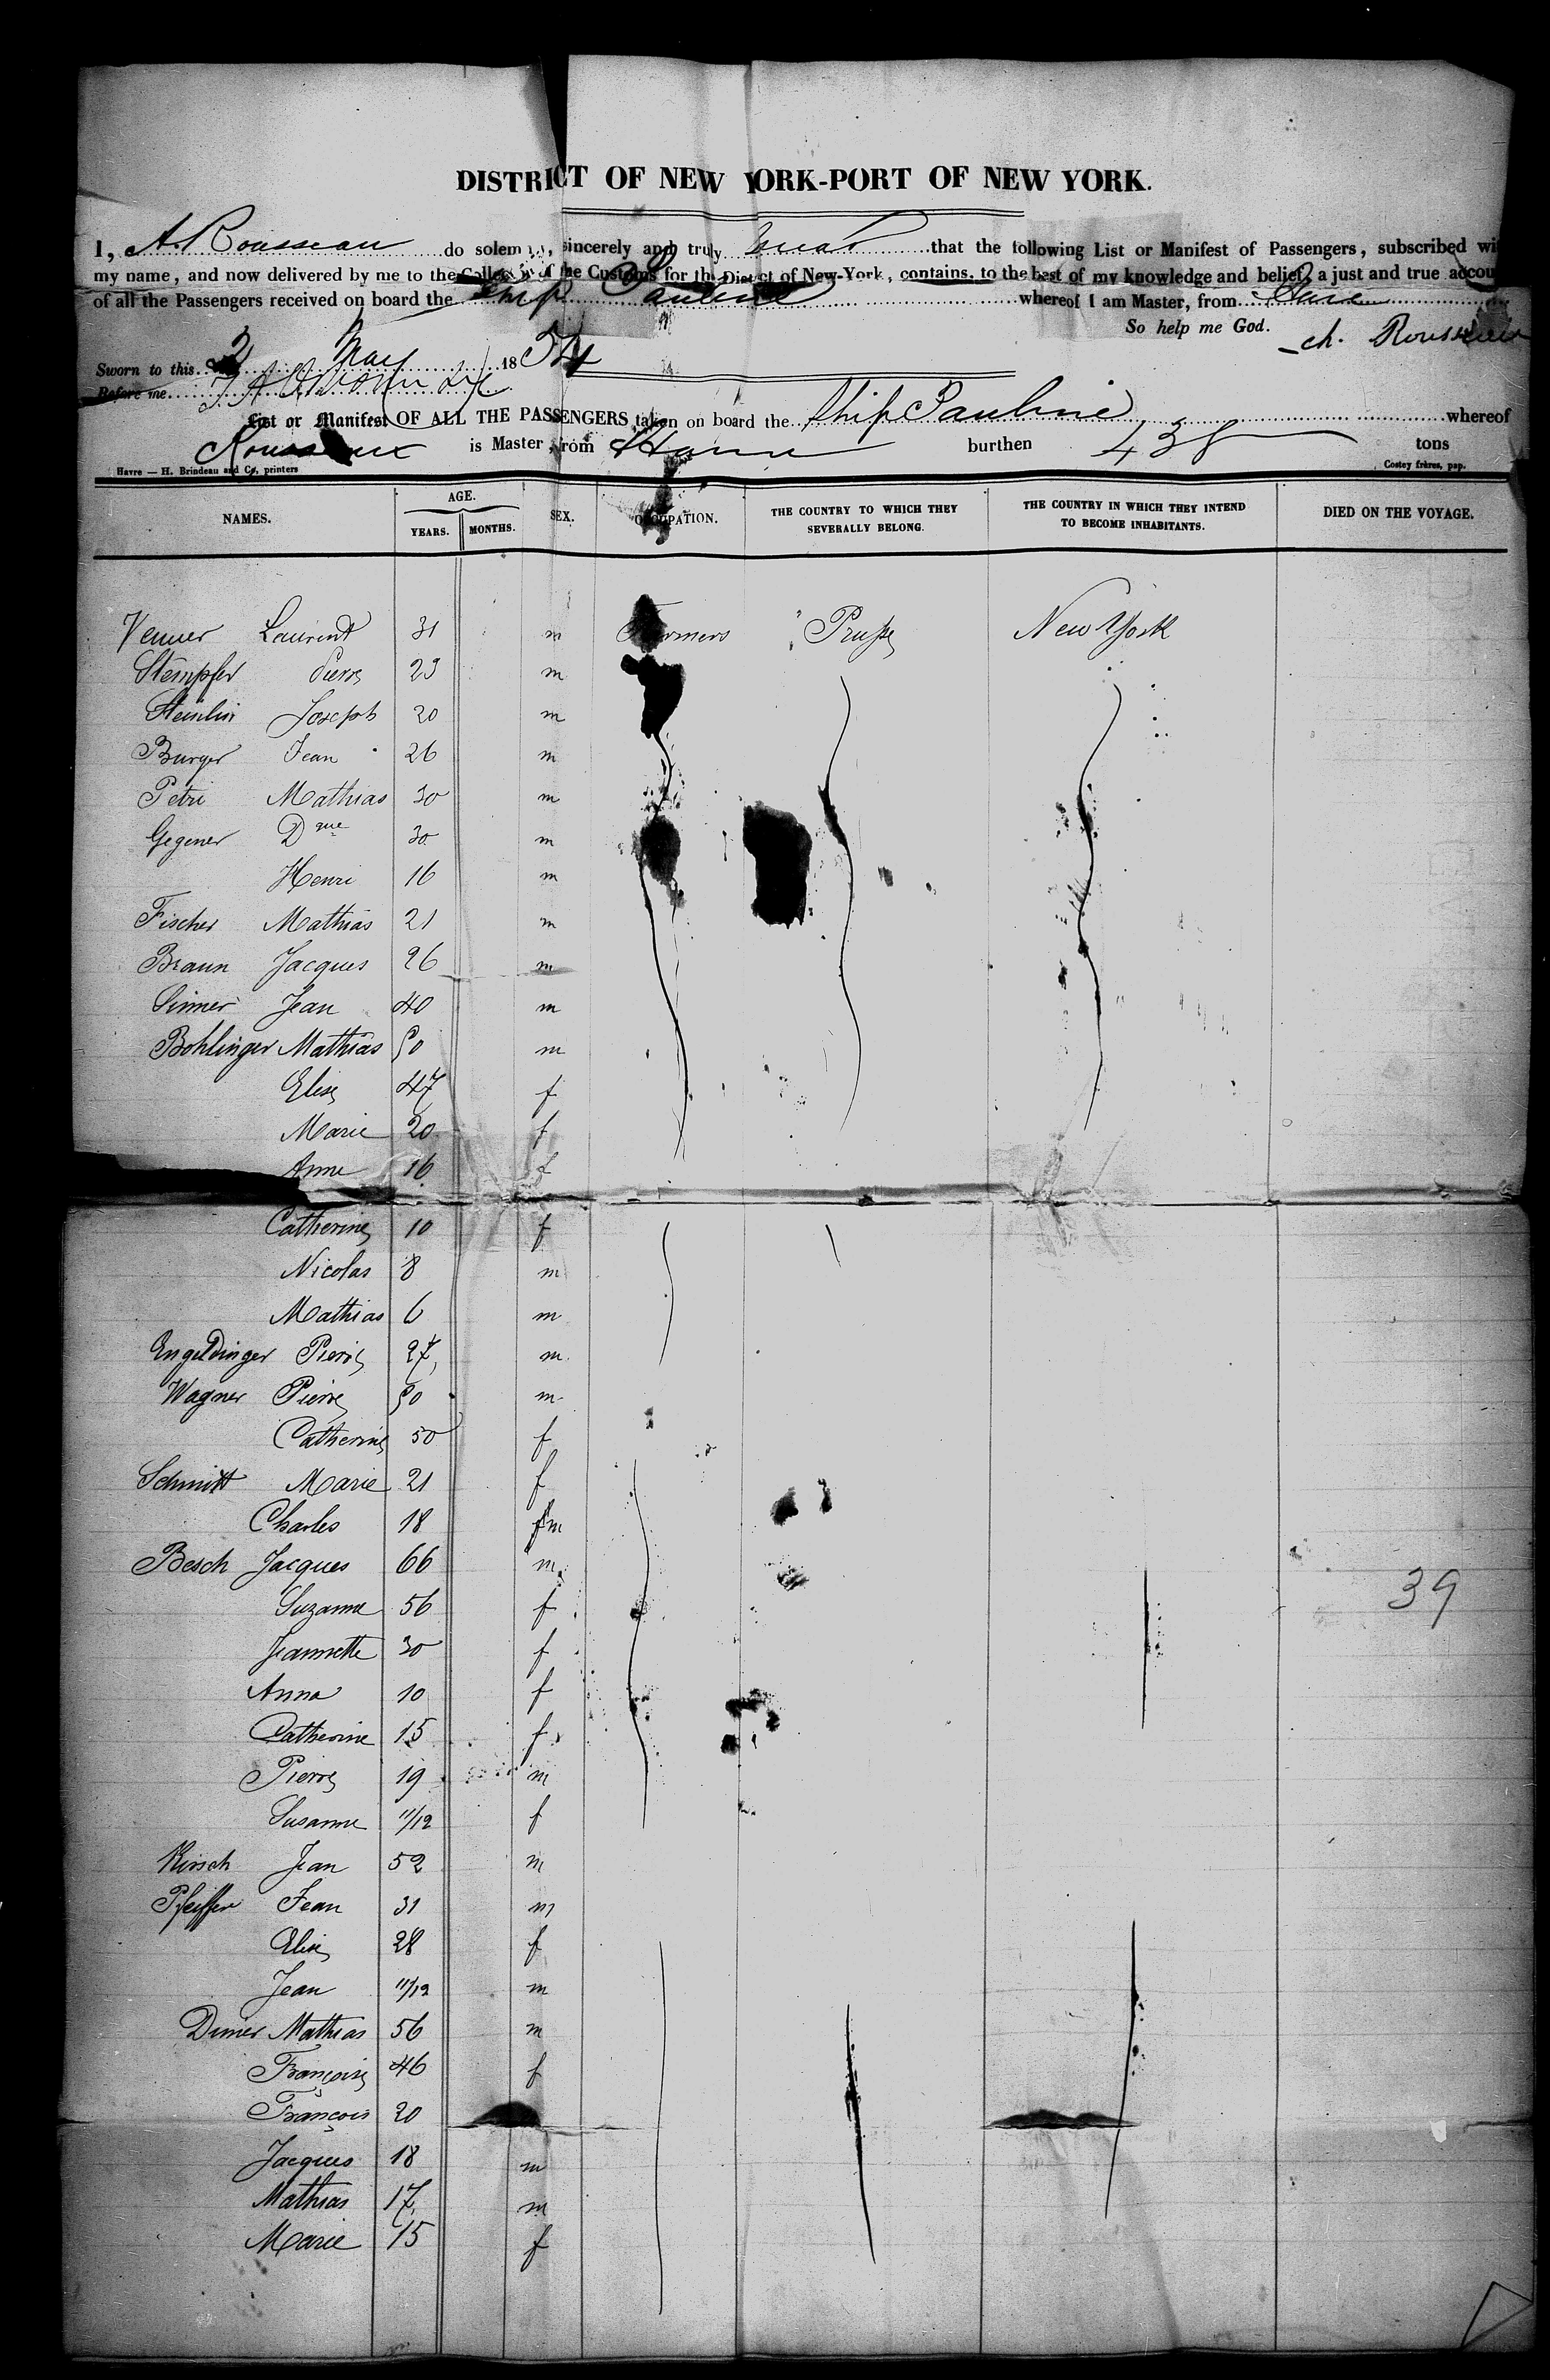 DISTRICT OF NEW YORK-PORT OF NEW YORK.
I, A. Rousseau do solemnly, sincerely and truly swear that the following List or Manifest of Passengers, subscribed wi
my name, and now delivered by me to the Collector of the Customs for the District of New-York, contains, to the best of my knowledge and belief, a just and true accou
of all the Passengers received on board the Ship Pauline whereof I am Master, from Havre
So help me God.
ch. Rousseau
Sworn to this 2 May 1854
Before me
List or Manifest OF ALL THE PASSENGERS taken on board the Ship Pauline whereof
Rousseau is Master, from Havre burthen 438 tons
Havre — H. Brindeau and Co, printers Costey frères, pap.
NAMES. AGE. YEARS. MONTHS. SEX. OCCUPATION. THE COUNTRY TO WHICH THEY SEVERALLY BELONG. THE COUNTRY IN WHICH THEY INTEND TO BECOME INHABITANTS. DIED ON THE VOYAGE.
Venner Laurent 31 m Farmers Prusse New York
Stempfer Pierre 23 m
Steinlin Joseph 20 m
Burger Jean 26 m
Petri Mathias 30 m
Gegener Dque 30 m
Henri 16 m
Fischer Mathias 21 m
Braun Jacques 26 m
Sinner Jean 40 m
Bohlinger Mathias 50 m
Elise 47 f
Marie 20 f
Anne 16 f
Catherine 10 f
Nicolas 8 m
Mathias 6 m
Engeldinger Pierre 27 m
Wagner Pierre 50 m
Catherine 50 f
Schmitt Marie 21 f
Charles 18 m
Besch Jacques 66 m
Suzanne 56 f 39
Jeannette 30 f
Anna 10 f
Catherine 15 f
Pierre 19 m
Susanne 11/12 f
Kirsch Jean 52 m
Pfeiffer Jean 31 m
Elise 28 f
Jean 11/12 m
Dimer Mathias 56 m
Françoise 46 f
François 20
Jacques 18 m
Mathias 17 m
Marie 15 f